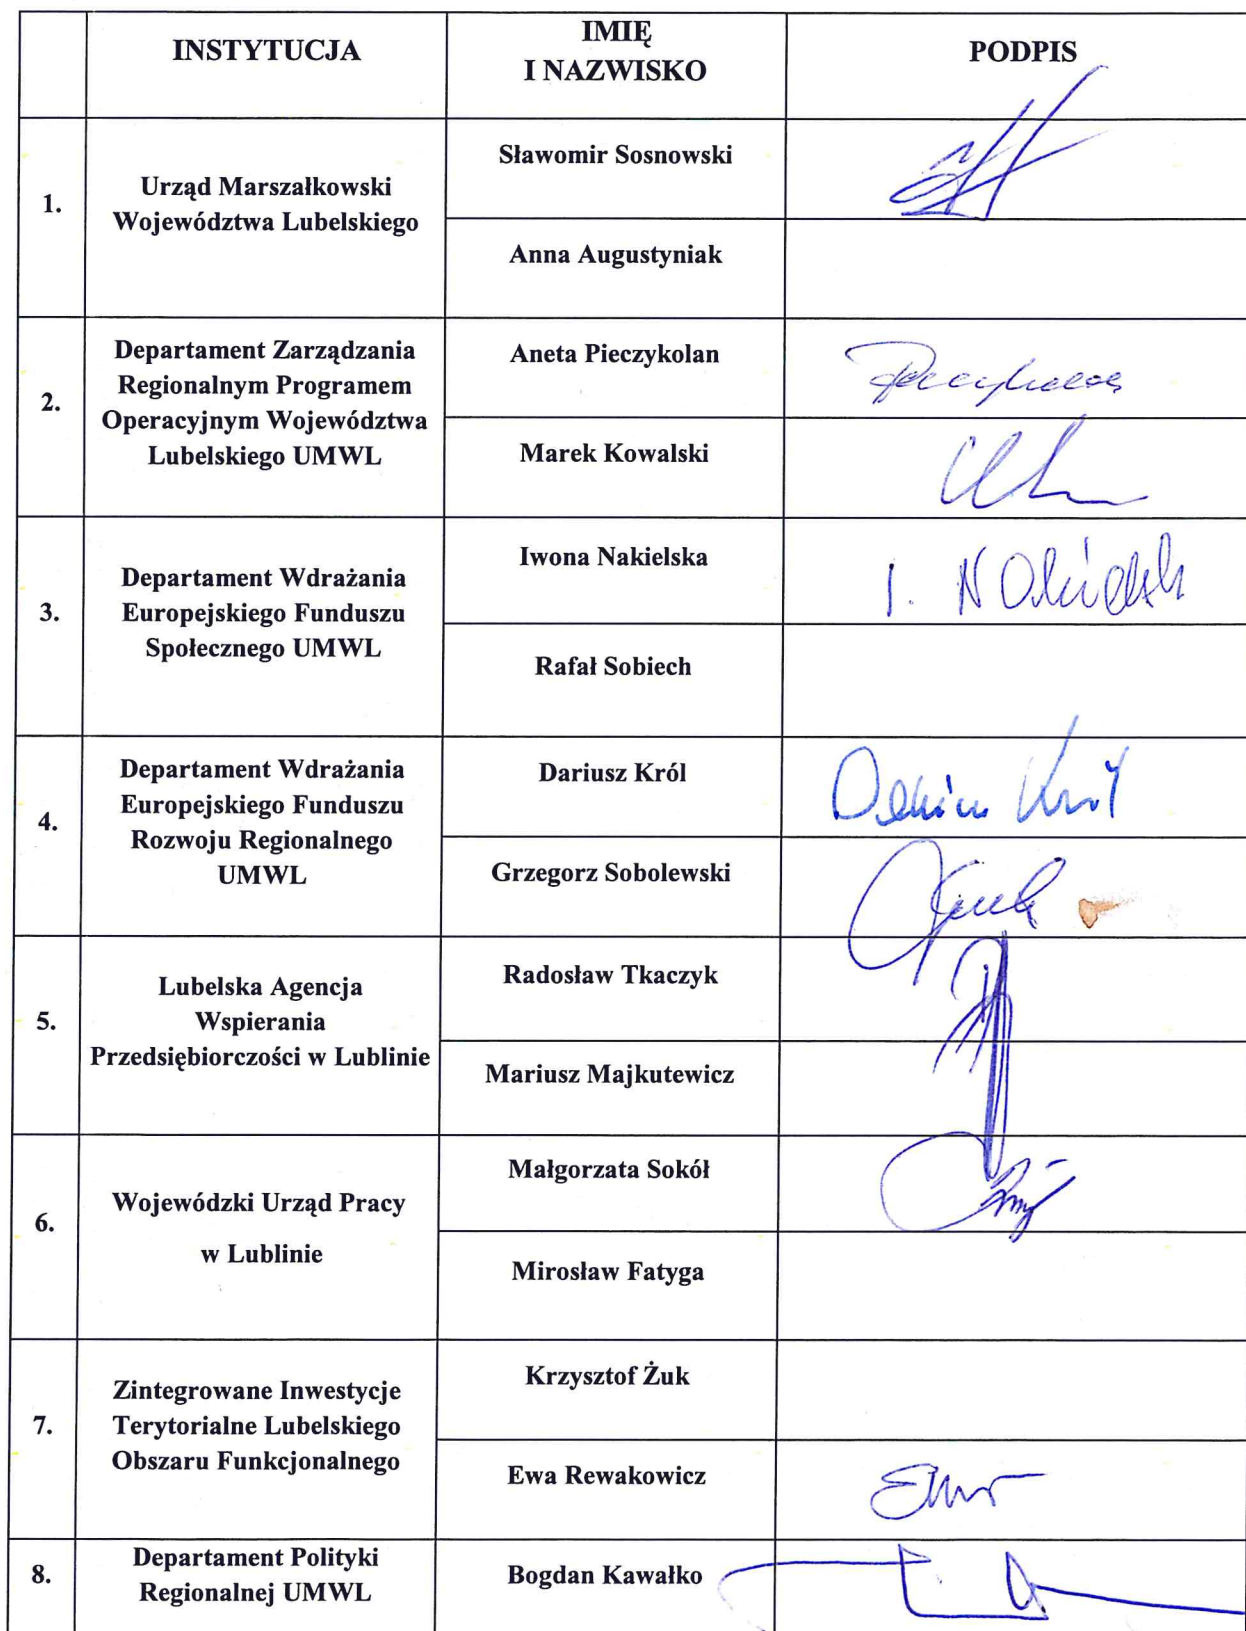 INSTYTUCJA
IMIĘ
I NAZWISKO
PODPIS
1.
Urząd Marszałkowski
Województwa Lubelskiego
Sławomir Sosnowski
Anna Augustyniak
2.
Departament Zarządzania
Regionalnym Programem
Operacyjnym Województwa
Lubelskiego UMWL
Aneta Pieczykolan
Marek Kowalski
3.
Departament Wdrażania
Europejskiego Funduszu
Społecznego UMWL
Iwona Nakielska
I. Nakielsk
Rafał Sobiech
4.
Departament Wdrażania
Europejskiego Funduszu
Rozwoju Regionalnego
UMWL
Dariusz Król
Król
Grzegorz Sobolewski
5.
Lubelska Agencja
Wspierania
Przedsiębiorczości w Lublinie
Radosław Tkaczyk
Mariusz Majkutewicz
6.
Wojewódzki Urząd Pracy
w Lublinie
Małgorzata Sokół
Mirosław Fatyga
7.
Zintegrowane Inwestycje
Terytorialne Lubelskiego
Obszaru Funkcjonalnego
Krzysztof Żuk
Ewa Rewakowicz
8.
Departament Polityki
Regionalnej UMWL
Bogdan Kawałko